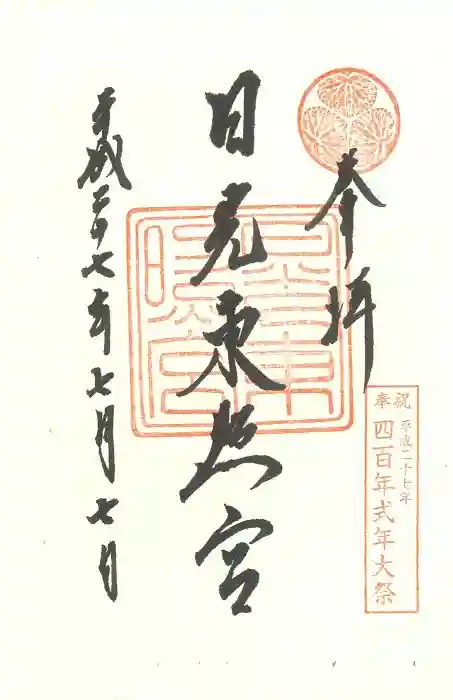 奉拝
奉祝
平成二十七年
四百年式年大祭
日光東照宮
平成二十七年七月七日